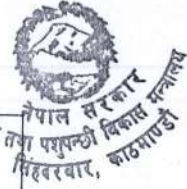 नेपाल सरकार
तथा पशुपन्छी विकास मन्त्रालय
सिंहदरबार, काठमाण्डौ